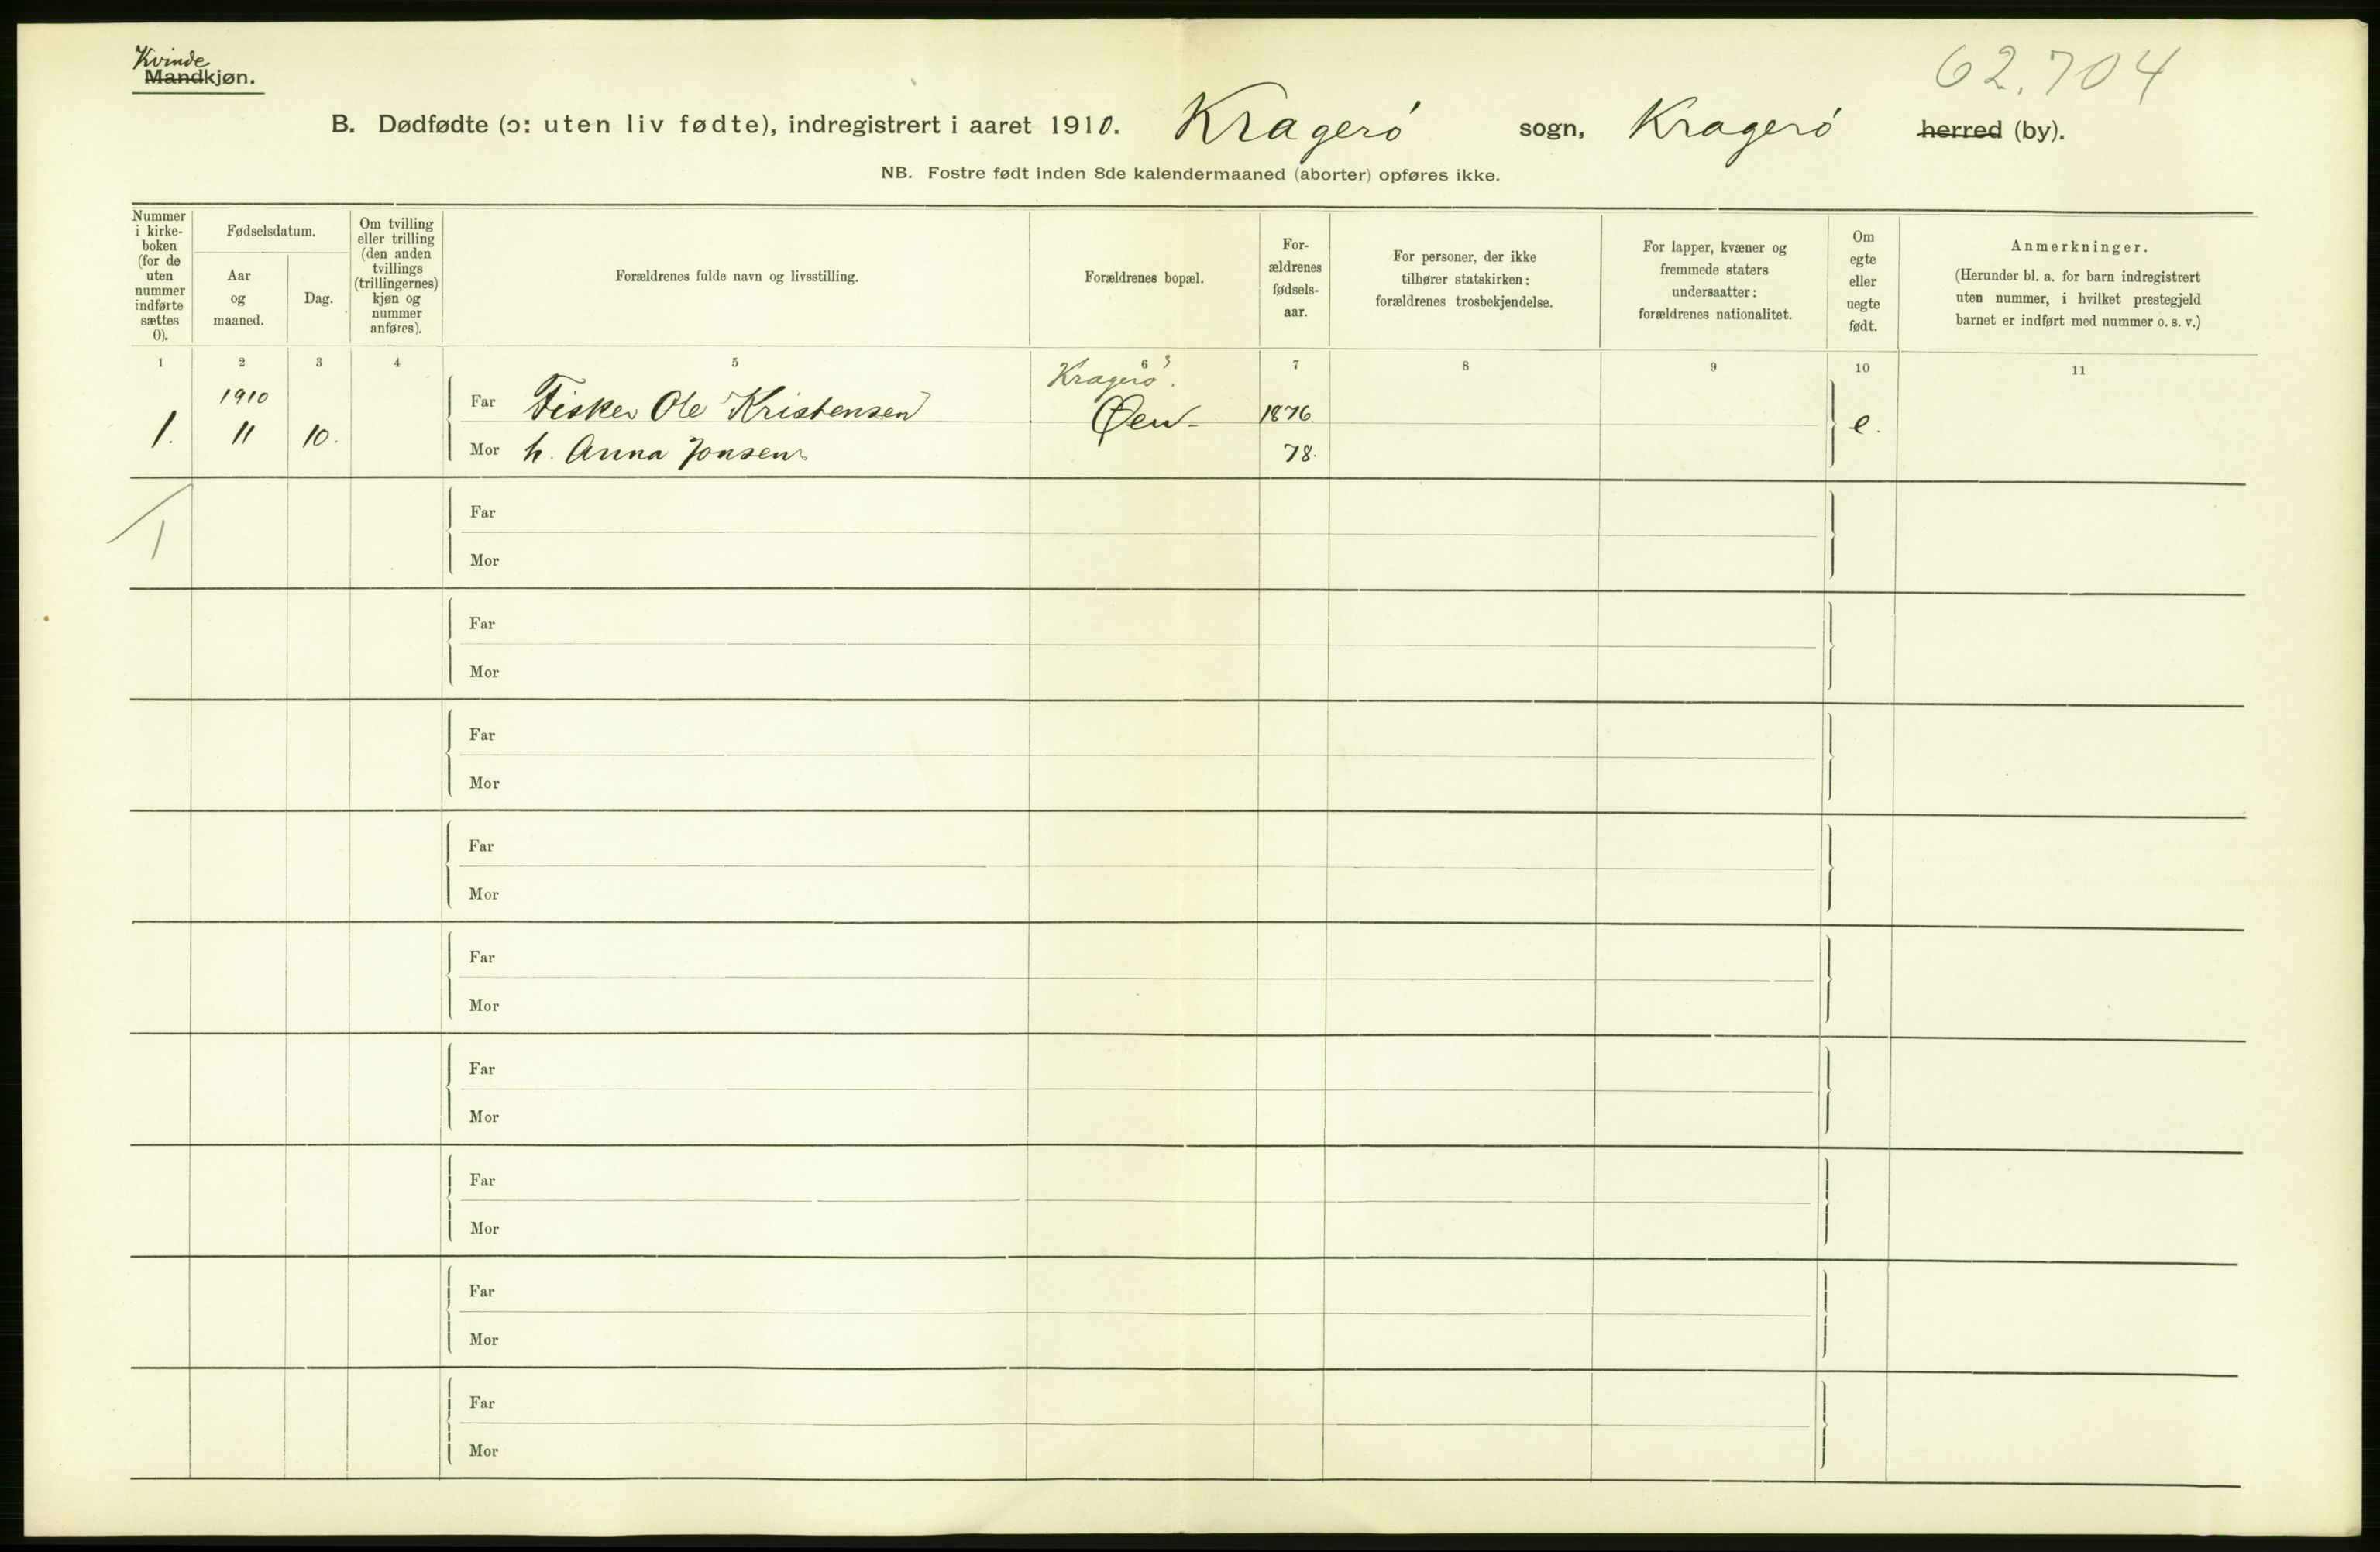 Kvinde
Mandkjøn.
62.704
B. Dødfødte (ɔ: uten liv fødte), indregistrert i aaret 1910. Kragerö sogn, Kragerö herred (by).
NB. Fostre født inden 8de kalendermaaned (aborter) opføres ikke.
Nummer
i kirke-
boken
(for de
uten
nummer
indførte
sættes
0).
Fødselsdatum.
Aar
og
maaned.
Dag.
Om tvilling
eller trilling
(den anden
tvillings
(trillingernes)
kjøn og
nummer
anføres).
Forældrenes fulde navn og livsstilling.
Forældrenes bopæl.
For-
ældrenes
fødsels-
aar.
For personer, der ikke
tilhører statskirken:
forældrenes trosbekjendelse.
For lapper, kvæner og
fremmede staters
undersaatter:
forældrenes nationalitet.
Om
egte
eller
uegte
født.
Anmerkninger.
(Herunder bl. a. for barn indregistrert
uten nummer, i hvilket prestegjeld
barnet er indført med nummer o. s. v.)
1 2 3 4 5 6 7 8 9 10 11
1910 Kragerö.
1. 11 10. Far Fisker Ole Kristensen Øen- 1876 e.
Mor h. Anna Jonsen 78.
1
Far
Mor
Far
Mor
Far
Mor
Far
Mor
Far
Mor
Far
Mor
Far
Mor
Far
Mor
Far
Mor